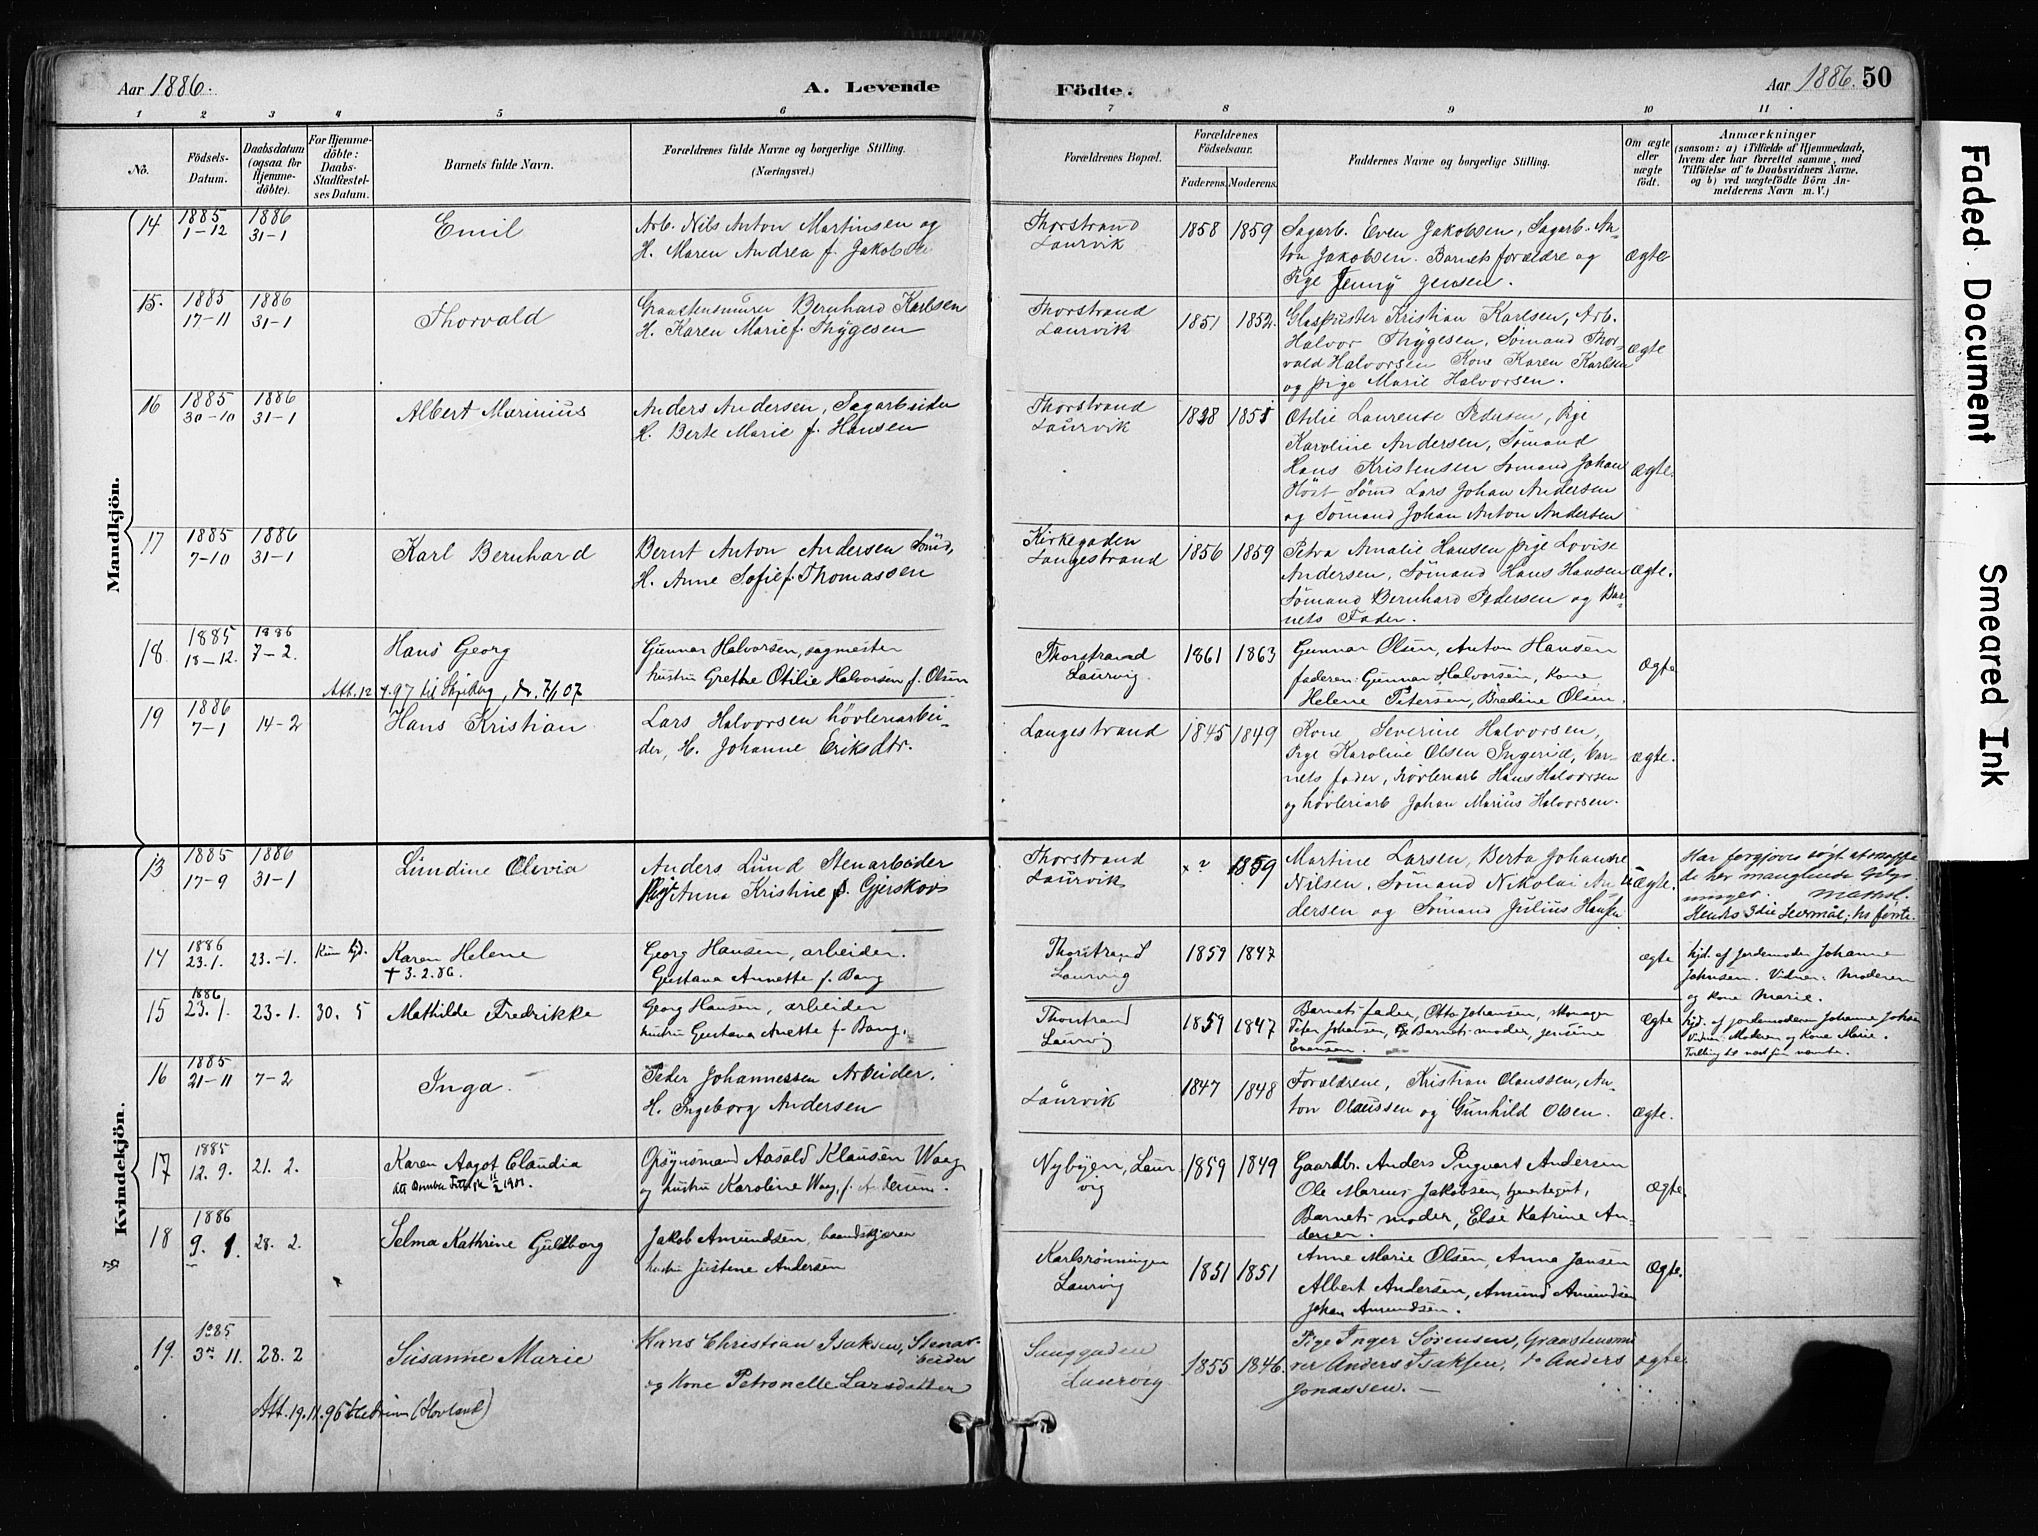 Aar 1886. A. Levende Födte. Aar 1886. 50
1 2 3 4 5 6 7 8 9 10 11
No.
Födsels-
Datum.
Daabsdatum
(ogsaa for
Hjemme-
döbte).
For Hjemme-
döbte:
Daabs-
Stadfæstel-
ses Datum.
Barnets fulde Navn.
Forældrenes fulde Navne og borgerlige Stilling.
(Næringsvei.)
Forældrenes Bopæl.
Forældrenes
Födselsaar.
Faderens. Moderens.
Faddernes Navne og borgerlige Stilling.
Om ægte
eller
uægte
født.
Anmærkninger
(saasom: a) i Tilfælde af Hjemmedaab,
hvem der har forrettet samme, med
Tilföielse af to Daabsvidners Navne.
og b) ved uægtefödte Börn An-
melderens Navn m. V.)
Mandkjön.
14 1885 1-12 1886 31-1 Emil
Arb. Nils Anton Martinsen og
H. Maren Andrea f. Jakobse
Thorstrand
Laurvik
1858 1859
Sagarb. Even Jakobsen, Sagarb. An-
ton Jakobsen. Barnets forældre og
Pige Jenny Jensen.
ægte
15. 1885 17-11 1886 31-1 Thorvald
Graastensmurer Bernhard Karlsen
H. Karen Marie f. Thygesen
Thorstrand
Laurvik
1851 1852.
Glaspuster Kristian Karlsen, Arb.
Halvor Thygesen, Sömand Thor-
vald Halvorsen Kone Karen Karlsen
og pige Marie Halvorsen.
ægte
16 1885 30-10 1886 31-1 Albert Marinius
Anders Andersen, Sagarbeider
H. Berte Marie f. Hansen
Thorstrand
Laurvik
1828 1851
Otilie Laurense Pedersen, Pige
Karoline Andersen, Sömand
Hans Kristensen Sömand Johan
Höst Sömd Lars Johan Andersen
og Sömand Johan Anton Andersen
ægte.
17 1885 7-10 1886 31-1 Karl Bernhard
Bernt Anton Andersen Sömd,
H. Anne Sofie f. Thomassen
Kirkegaden
Langestrand
1856 1859
Petra Amalie Hansen pige Lovise
Andersen, Sömand Hans Hansen
Sömand Bernhard Pedersen og Bar-
nets Fader.
ægte.
18. 1885 18-12. 1886 7-2. Hans Georg
Att. 12 4.97 til Skjeberg, do. 7/1 07
Gunnar Halvorsen, sagmester
hustru Grethe Otilie Halvorsen f. Olsen
Thorstrand
Laurvig.
1861 1863
Gunnar Olsen, Anton Hansen
faderen: Gunnar Halvorsen, Kone
Helene Petersen, Bredine Olsen.
Ægte
19 1886 7-1 14-2 Hans Kristian
Lars Halvorsen hövleriarbei-
der, H. Johanne Eriksdtr.
Langestrand
1845 1849
Kone Severine Halvorsen,
Pige Karoline Olsen Ingerid, bar-
nets fader, hövleriarb Hans Halvorsen
og hövleriarb Johan Marius Halvorsen.
ægte.
Kvindekjön.
13 1885 17-9 1886 31-1 Lundine Olivia
Anders Lund Stenarbeider
Anna Kristine f. Gjerskovs
Thorstrand
Laurvik
x ? 1859
Martine Larsen, Berta Johanne
Nilsen, Sömand Nikolai An-
dersen og Sömand Julius Hansen
ægte.
Har forgjæves sögt at skaffe
de her manglende Oplys-
ninger.
14 1886 23.1. 23.-1. Kun hjd. Karen Helene
† 3.2.86.
Georg Hansen, arbeider.
Gustava Annette f. Bang
Thorstrand
Laurvig
1859 1847
ægte
hjd. af jordemoder Johanne
Johnsen. Vidner: Moderen
og Kone Marie.
15 1886 23.1. 23.1. 30. 5 Mathilde Fredrikke
Georg Hansen, arbeider
hustru Gustava Anette f. Bang.
Thorstrand
Laurvig
1859 1847
Barnets fader, Otto Johansen,
Peter Johansen, Barnets moder, Jensine
Evensen
Ægte
hjd. af jordemoderen Johanne Johnsen
Vidner: Moderen og Kone Marie.
Tvilling til næst foran nævnte.
16 1885 21-11 7-2 Inga.
Peder Johannessen Arbeider.
H. Ingeborg Andersen
Laurvik
1847 1848
Forældrene, Kristian Olaussen, An-
ton Olaussen og Gunhild Olsen.
ægte.
17 1885 12.9. 21.2. Karen Aagot Claudia
Opsynsmand Aasold Klausen Waag
og hustru Karoline Waag, f. Andersen.
Nybyen, Laur
vig
1859 1849
Gaardbr. Anders Ingvart Andersen
Ole Marius Jakobsen, tjenestegut,
Barnets moder, Else Katrine An-
dersen.
Ægte.
18 1886 9. 1. 28.2. Selma Kathrine Guldborg
Jakob Amundsen, baandskjærer
hustru Justene Andersen
Karlsrönningen
Laurvig
1851 1851
Anne Marie Olsen, Anna Jansen
Albert Andersen, Amund Amundsen
Johan Amundsen.
Ægte.
19. 1885 3 11. 28.2 Susanne Marie
Att. 19.11.95 Hedrum (Hovland)
Hans Christian Isaksen, Stenar-
beider
og Kone Petronelle Larsdatter
Langgaden
Laurvig
1855 1846.
Pige Inger Sörensen, Graastensmu
rer Anders Isaksen, do Anders
Jonassen. —
ægte.
Faded Document
Smeared Ink